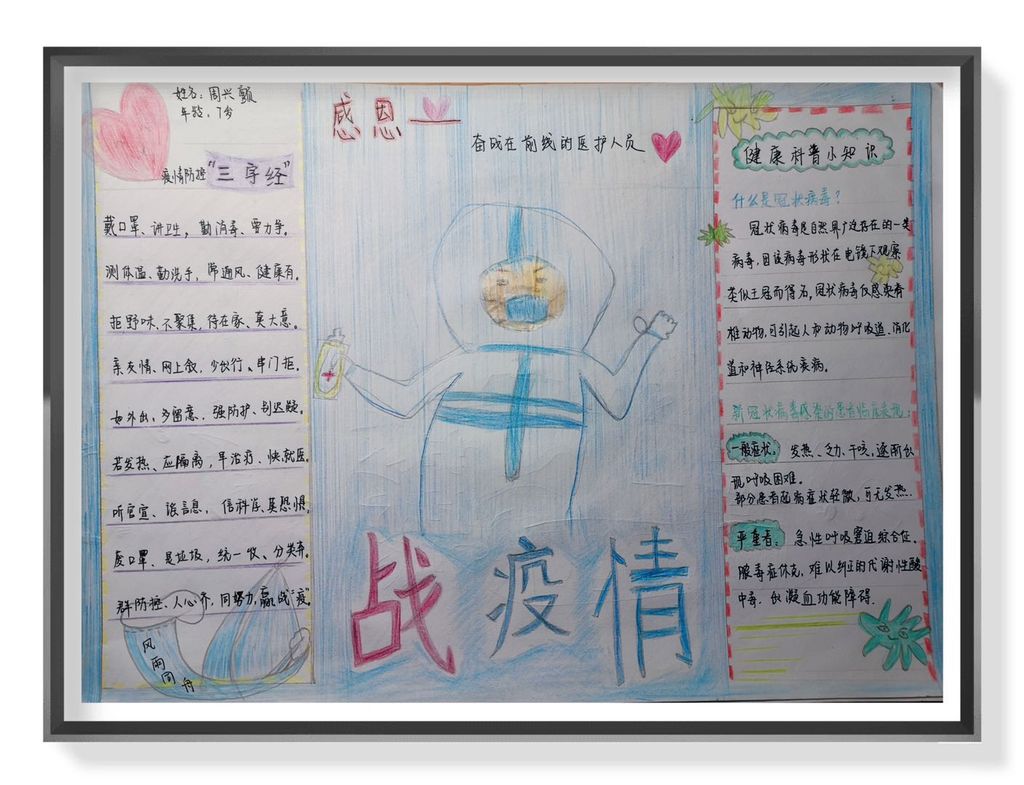 姓名：周兴颢
年龄：7岁
疫情防控"三字经"
戴口罩、讲卫生，勤消毒、要力争。
测体温、勤洗手，常通风、健康有。
拒野味、不聚集，待在家、莫大意。
亲友情、网上叙，少出行、串门拒。
如外出、多留意，强防护、别迟疑。
若发热、应隔离，早治疗、快就医。
听官宣、谣言息，信科学、莫恐惧。
废口罩、是垃圾，统一收、分类弃。
群防控、人心齐，同努力，赢战"疫"。
风雨同舟
感恩
奋战在前线的医护人员
战疫情
健康科普小知识
什么是冠状病毒？
冠状病毒是自然界广泛存在的一类
病毒，因该病毒形状在电镜下观察
类似王冠而得名，冠状病毒仅感染脊
椎动物，可引起人和动物呼吸道、消化
道和神经系统疾病。
新冠状病毒感染的患者临床表现：
一般症状： 发热、乏力、干咳，逐渐出
现呼吸困难。
部分患者起病症状轻微，可无发热.
严重者： 急性呼吸窘迫综合征.
脓毒症休克，难以纠正的代谢性酸
中毒. 出凝血功能障碍.